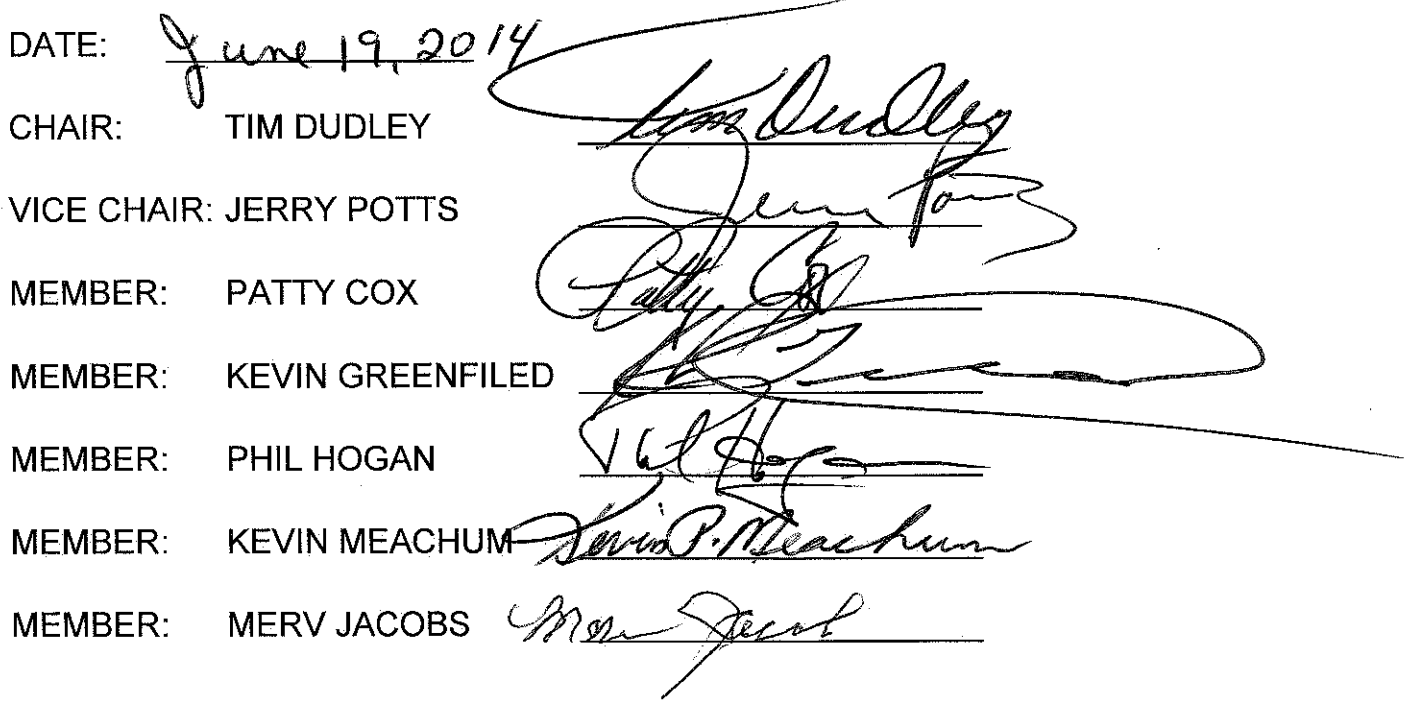 DATE: June 19, 2014
CHAIR: TIM DUDLEY Tim Dudley
VICE CHAIR: JERRY POTTS
MEMBER: PATTY COX Patty Cox
MEMBER: KEVIN GREENFILED
MEMBER: PHIL HOGAN Phil Hogan
MEMBER: KEVIN MEACHUM Kevin P. Meachum
MEMBER: MERV JACOBS Merv Jacobs